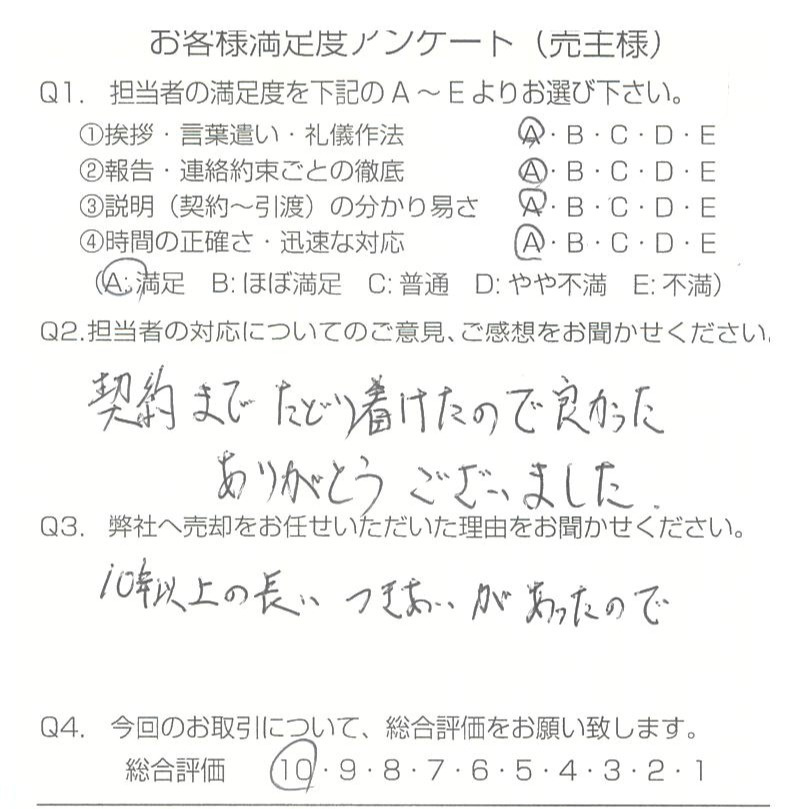 お客様満足度アンケート（売主様）
Q1. 担当者の満足度を下記のA～Eよりお選び下さい。
①挨拶・言葉遣い・礼儀作法 A・B・C・D・E
②報告・連絡約束ごとの徹底 A・B・C・D・E
③説明（契約～引渡）の分かり易さ A・B・C・D・E
④時間の正確さ・迅速な対応 A・B・C・D・E
（A:満足 B:ほぼ満足 C:普通 D:やや不満 E:不満）
Q2.担当者の対応についてのご意見、ご感想をお聞かせください。
契約までたどり着けたので良かった
ありがとうございました.
Q3. 弊社へ売却をお任せいただいた理由をお聞かせください。
10年以上の長いつきあいがあったので
Q4. 今回のお取引について、総合評価をお願い致します。
総合評価 10・9・8・7・6・5・4・3・2・1